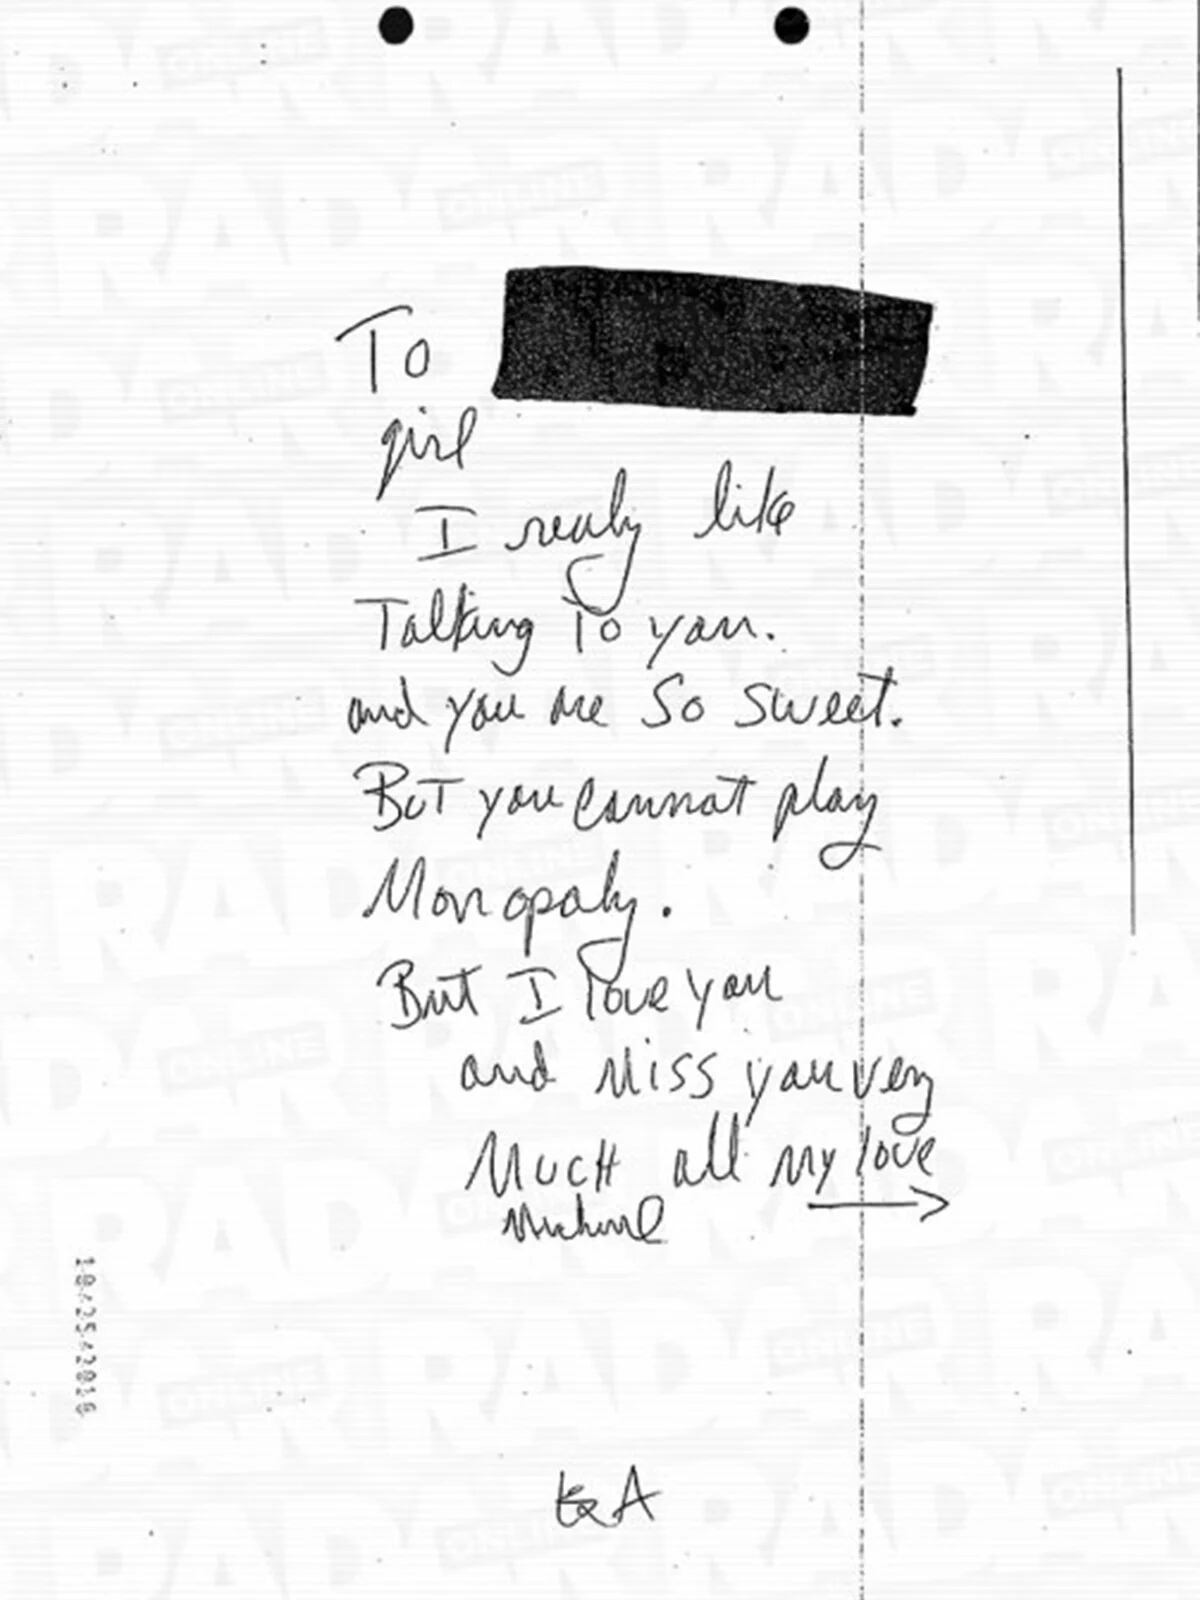 To
girl
I realy like
Talking To you.
and you are So Sweet.
But you cannot play
Monopoly.
But I love you
and Miss you very
Much all my love
Michael